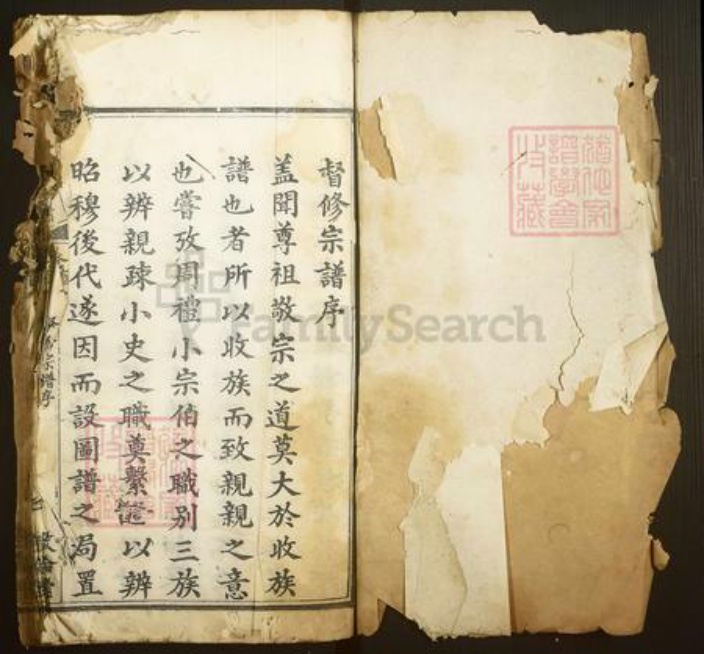 督修宗譜序
蓋聞尊祖敬宗之道莫大於收族
譜也者所以收族而致親親之意
也嘗攷周禮小宗伯之職別三族
以辨親疎小史之職奠繫世以辨
昭穆後代遂因而設圖譜之局置
宗譜序
FamilySearch
譜學會
收藏